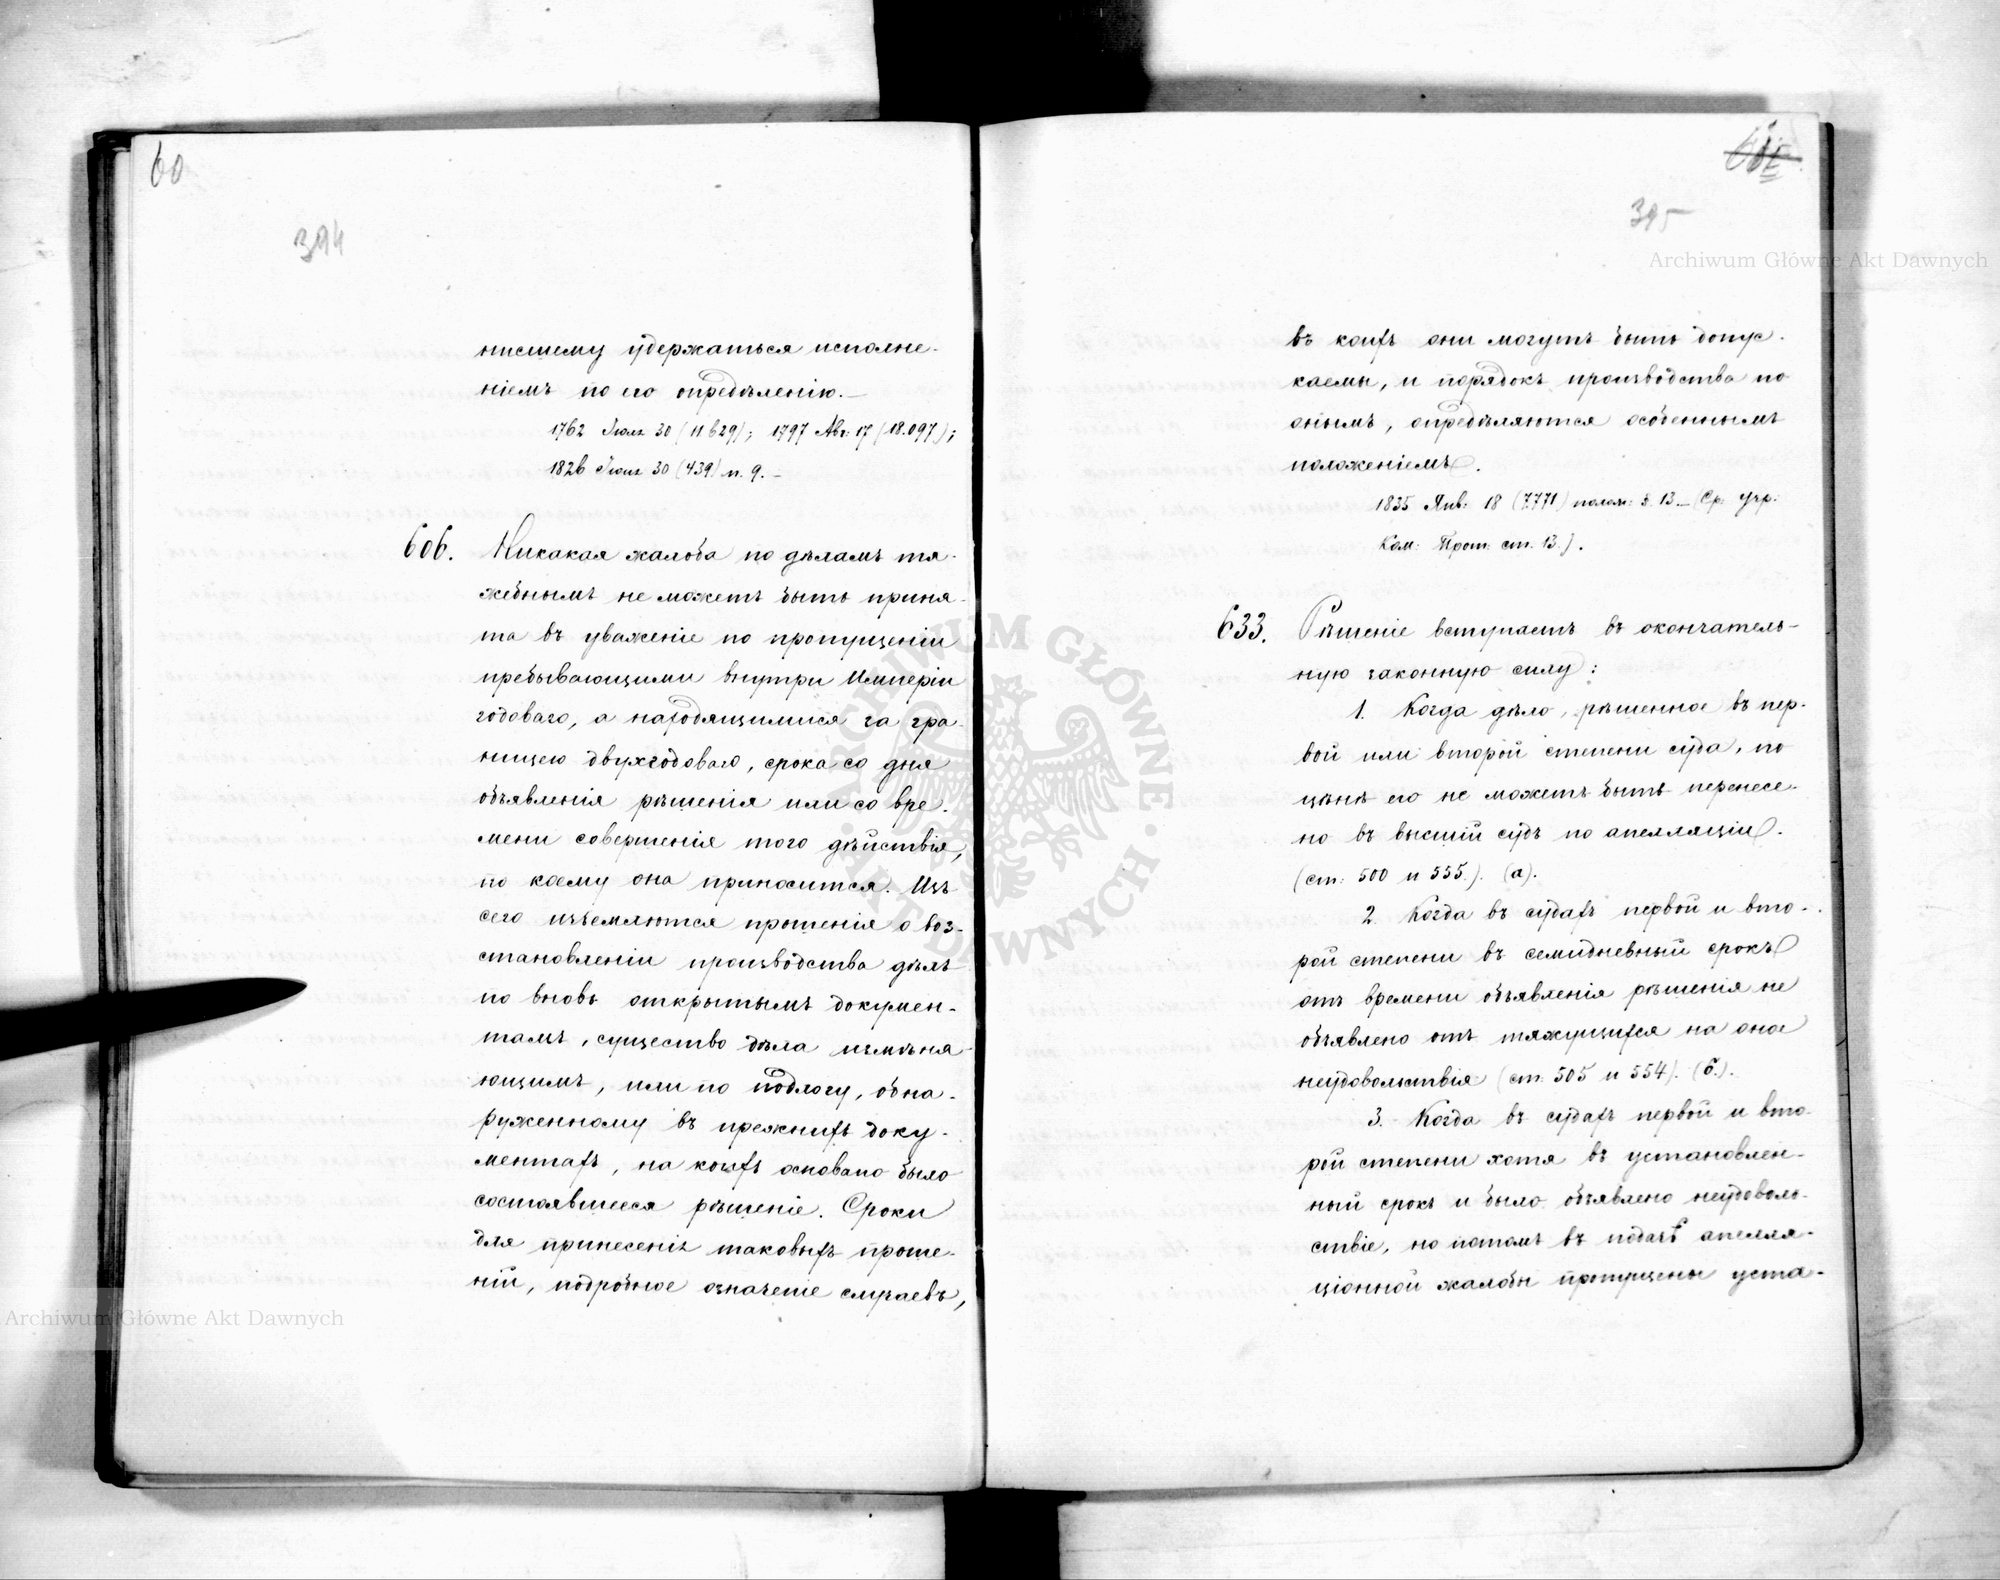 60
394
нисшему удержаться исполне-
ніемъ по его опредѣленію.—
1762 Іюля 30 (11629); 1797 Авг: 17 (18.097);
1826 Іюля 30 (439) п. 9.—
606. Никакая жалоба по дѣламъ тя-
жебнымъ не можетъ быть приня-
та въ уваженіе по пропущеніи
пребывающими внутри Имперіи
годоваго, а находящимися за гра-
ницею двухгодоваго, срока со дня
объявленія рѣшенія или со вре-
мени совершенія того дѣйствія,
по коему она приносится. Изъ
сего изъемлются прошенія о воз-
становленіи производства дѣлъ
по вновь открытымъ докумен-
тамъ, существо дѣла измѣня-
ющимъ, или по подлогу, обна-
руженному въ прежнихъ доку-
ментахъ, на коихъ основано было
состоявшееся рѣшеніе. Сроки
для принесенія таковыхъ проше-
ній, подробное означеніе случаевъ,
395
въ коихъ они могутъ быть допус-
каемы, и порядокъ производства по
онымъ, опредѣляются особеннымъ
положеніемъ.
1835 Янв: 18 (7771) полож: § 13 — (Ср: учр:
Ком: Прош: ст. 13.).
633. Рѣшеніе вступаетъ въ окончатель-
ную законную силу:
1. Когда дѣло, рѣшенное въ пер-
вой или второй степени суда, по
цѣнѣ его не можетъ быть перенесе-
но въ высшій судъ по апелляціи.
(ст: 500 и 555.). (а).
2. Когда въ судахъ первой и вто-
рой степени въ семидневный срокъ
отъ времени объявленія рѣшенія не
объявлено отъ тяжущихся на оное
неудовольствія (ст: 505 и 554). (б.).
3. Когда въ судахъ первой и вто-
рой степени хотя въ установлен-
ный срокъ и было объявлено неудоволь-
ствіе, но потомъ въ подачѣ апелля-
ціонной жалобы пропущены уста-
Archiwum Główne Akt Dawnych
Archiwum Główne Akt Dawnych
ARCHIWUM GŁÓWNE · AKT DAWNYCH ·